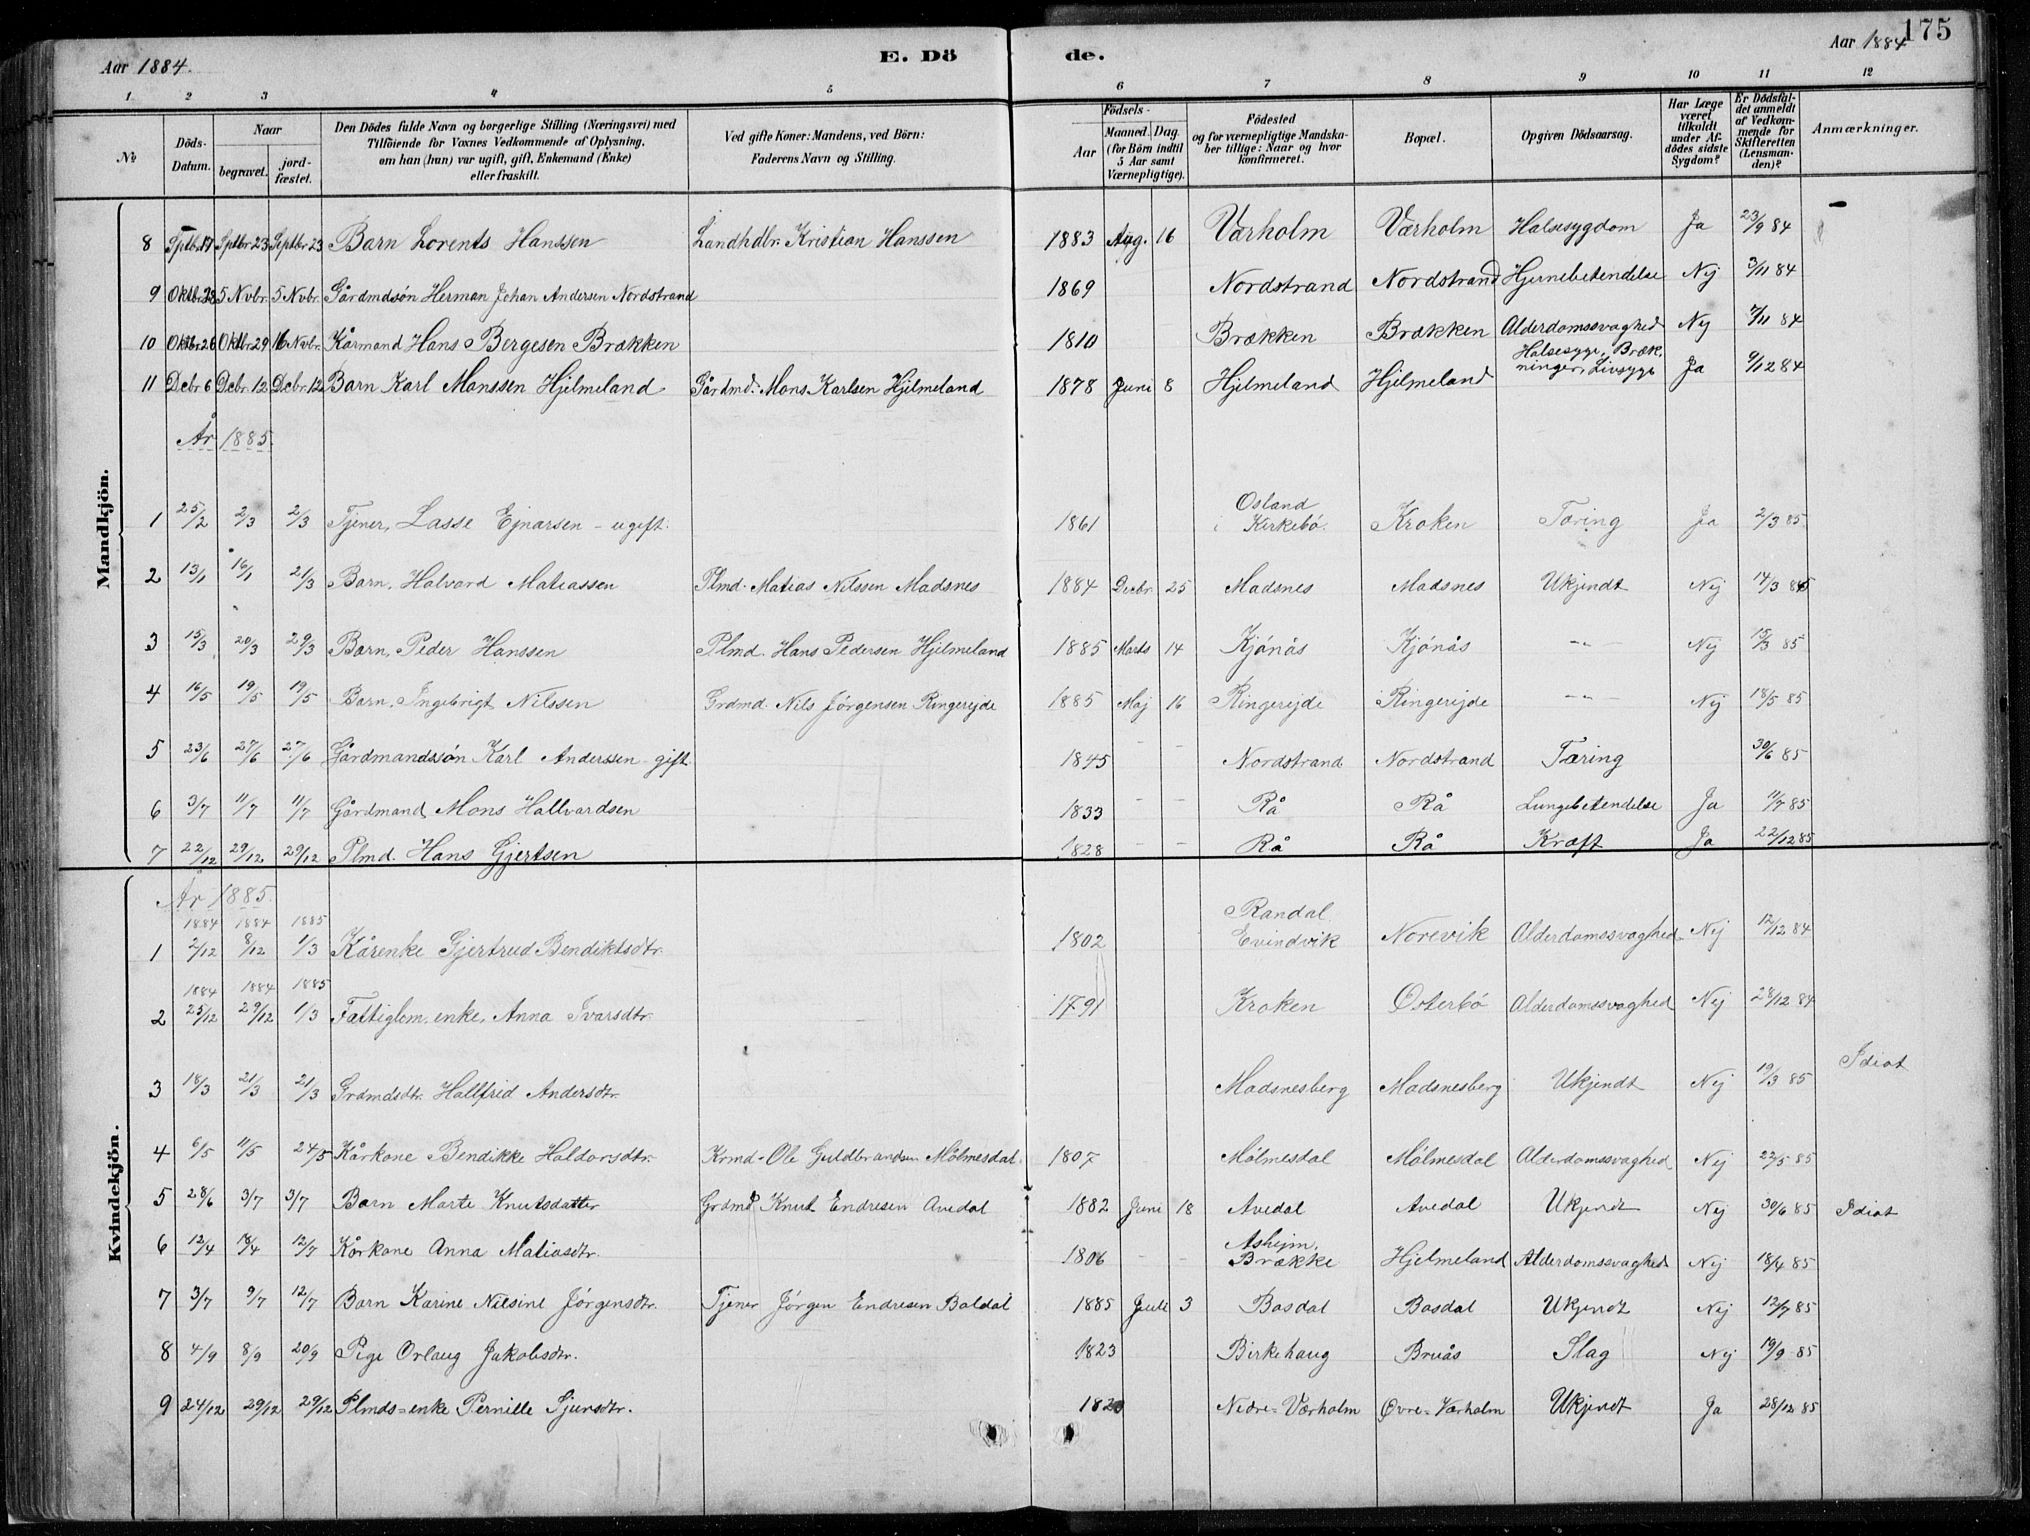 175
Aar 1884. E. Dö de. Aar 1884
1 2 3 4 5 6 7 8 9 10 11 12
№ Döds-Datum. Naar begravet. jordfæstet. Den Dödes fulde Navn og borgerlige Stilling (Næringsvei) med Tilföiende for Voxnes Vedkommende af Oplysning, om han (hun) var ugift, gift, Enkemand (Enke) eller fraskilt. Ved gifte Koner: Mandens, ved Börn: Faderens Navn og Stilling. Födsels- Aar Maaned. Dag. (for Börn indtil 5 Aar samt Værnepligtige). Födested og for værnepligtige Mandskaber tillige: Naar og hvor konfirmeret. Bopæl. Opgiven Dödsaarsag. Har Læge været tilkaldt under Afdödes sidste Sygdom? Er Dödsfaldet anmeldt af Vedkommende for Skifteretten (Lensmanden)? Anmærkninger.
Mandkjön.
8 Sptbr. 17 Sptbr. 23 Septbr. 23 Barn Lorents Hanssen Landhdlr. Kristian Hanssen 1883 Aug. 16 Værholm Værholm Halsesygdom Ja 23/9 84
9 Oktbr. 28 5 Nvbr. 5 Nvbr. Gårdmdsøn Herman Johan Andersen Nordstrand 1869 Nordstrand Nordstrand Hjernebetendelse Nej 3/11 84
10 Oktbr. 26 Oktbr. 29 16 Nvbr. Kårmand Hans Bergesen Brækken 1810 Brækken Brækken Alderdomssvaghed Nej 7/11 84
11 Dcbr 6 Dcbr. 12 Dcbr. 12 Barn Karl Monssen Hjelmeland Gårdmd. Mons Karlsen Hjelmeland 1878 Juni 8 Hjelmeland Hjelmeland Halsesyge, Brækninger, Livsyge Ja 9/12 84
År 1885.
1 25/2 2/3 2/3 Tjener, Lasse Ejnarsen - ugift. 1861 Osland i Kirkebö. Kroken Tæring Ja 2/3 85.
2 13/1 16/1 21/3 Barn, Halvard Matiassen Plmd. Matias Nilssen Madsnes 1884 Decbr. 25 Madsnes Madsnes Ukjendt Nej 14/3 85
3 15/3 20/3 29/3 Barn, Peder Hanssen Plmd. Hans Pedersen Hjelmeland 1885 Marts 14 Kjönås Kjönås -"- Nej 15/3 85
4 16/5 19/5 19/5 Barn, Ingebrigt Nilssen Grdmd. Nils Jörgensen Ringerejde 1885 Maj 16 Ringerejde Ringerejde -"- Nej 18/5 85
5 23/6 27/6 27/6 Gårdmandssön Karl Anderssen - gift 1845 - - Nordstrand Nordstrand Tæring 30/6 85
6 3/7 11/7 11/7 Gårdmand Mons Hallvardsen 1833 - - Rå Rå Lungebetendelse Ja 11/7 85
7 22/12 29/12 29/12 Plmd. Hans Gjertsen 1828 - - Rå Rå Kræft Ja 22/12 85
Kvindekjön.
År 1885.
1884 1884 1885
1 2/12 8/12 1/3 Kårenke Gjertrud Bendiktsdtr. 1802 Randal Evindvik Norevik Alderdomssvaghed Nej 12/12 84
1884 1884 1885
2 25/12 29/12 1/3 Fattiglem. enke, Anna Ivarsdtr. 1791 Kroken Osterbö Alderdomssvaghed Nej 28/12 84
3 18/3 21/3 21/3 Grdmdsdtr. Hallfrid Andersdtr. Madsnesberg Madsnesberg Ukjendt Nej 19/3 85 Idiot
4 6/5 11/5 24/5 Kårkone Bendikke Haldorsdtr. Krmd. Ole Guldbrandsen Mölmesdal. 1807 Mölmesdal Mölmesdal Alderdomssvaghed Nej 22/5 85
5 28/6 3/7 3/7 Barn Marte Knutsdatter Grdmd Knut Endresen Avedal 1882 Juni 18 Avedal Avedal Ukjendt Nej 30/6 85 Idiot
6 12/4 18/4 12/7 Kårkone Anna Matiasdtr. 1806 - - Askejm, Brække Hjelmeland Alderdomssvaghed Nej 18/4 85
7 3/7 9/7 12/7 Barn Karine Nilsine Jörgensdtr. Tjener Jörgen Endresen Basdal 1885 Juli 3 Basdal Basdal Ukjendt Nej 12/7 85
8 4/9 8/9 20/9 Pige Orlaug Jakobsdtr. 1823 Birkehaug Bruås Slag Nej 19/9 85
9 24/12 29/12 29/12 Plmds=enke Pernille Sjursdtr. 1820 Nedre=Værholm Øvre=Værholm Ukjendt Ja 28/12 85